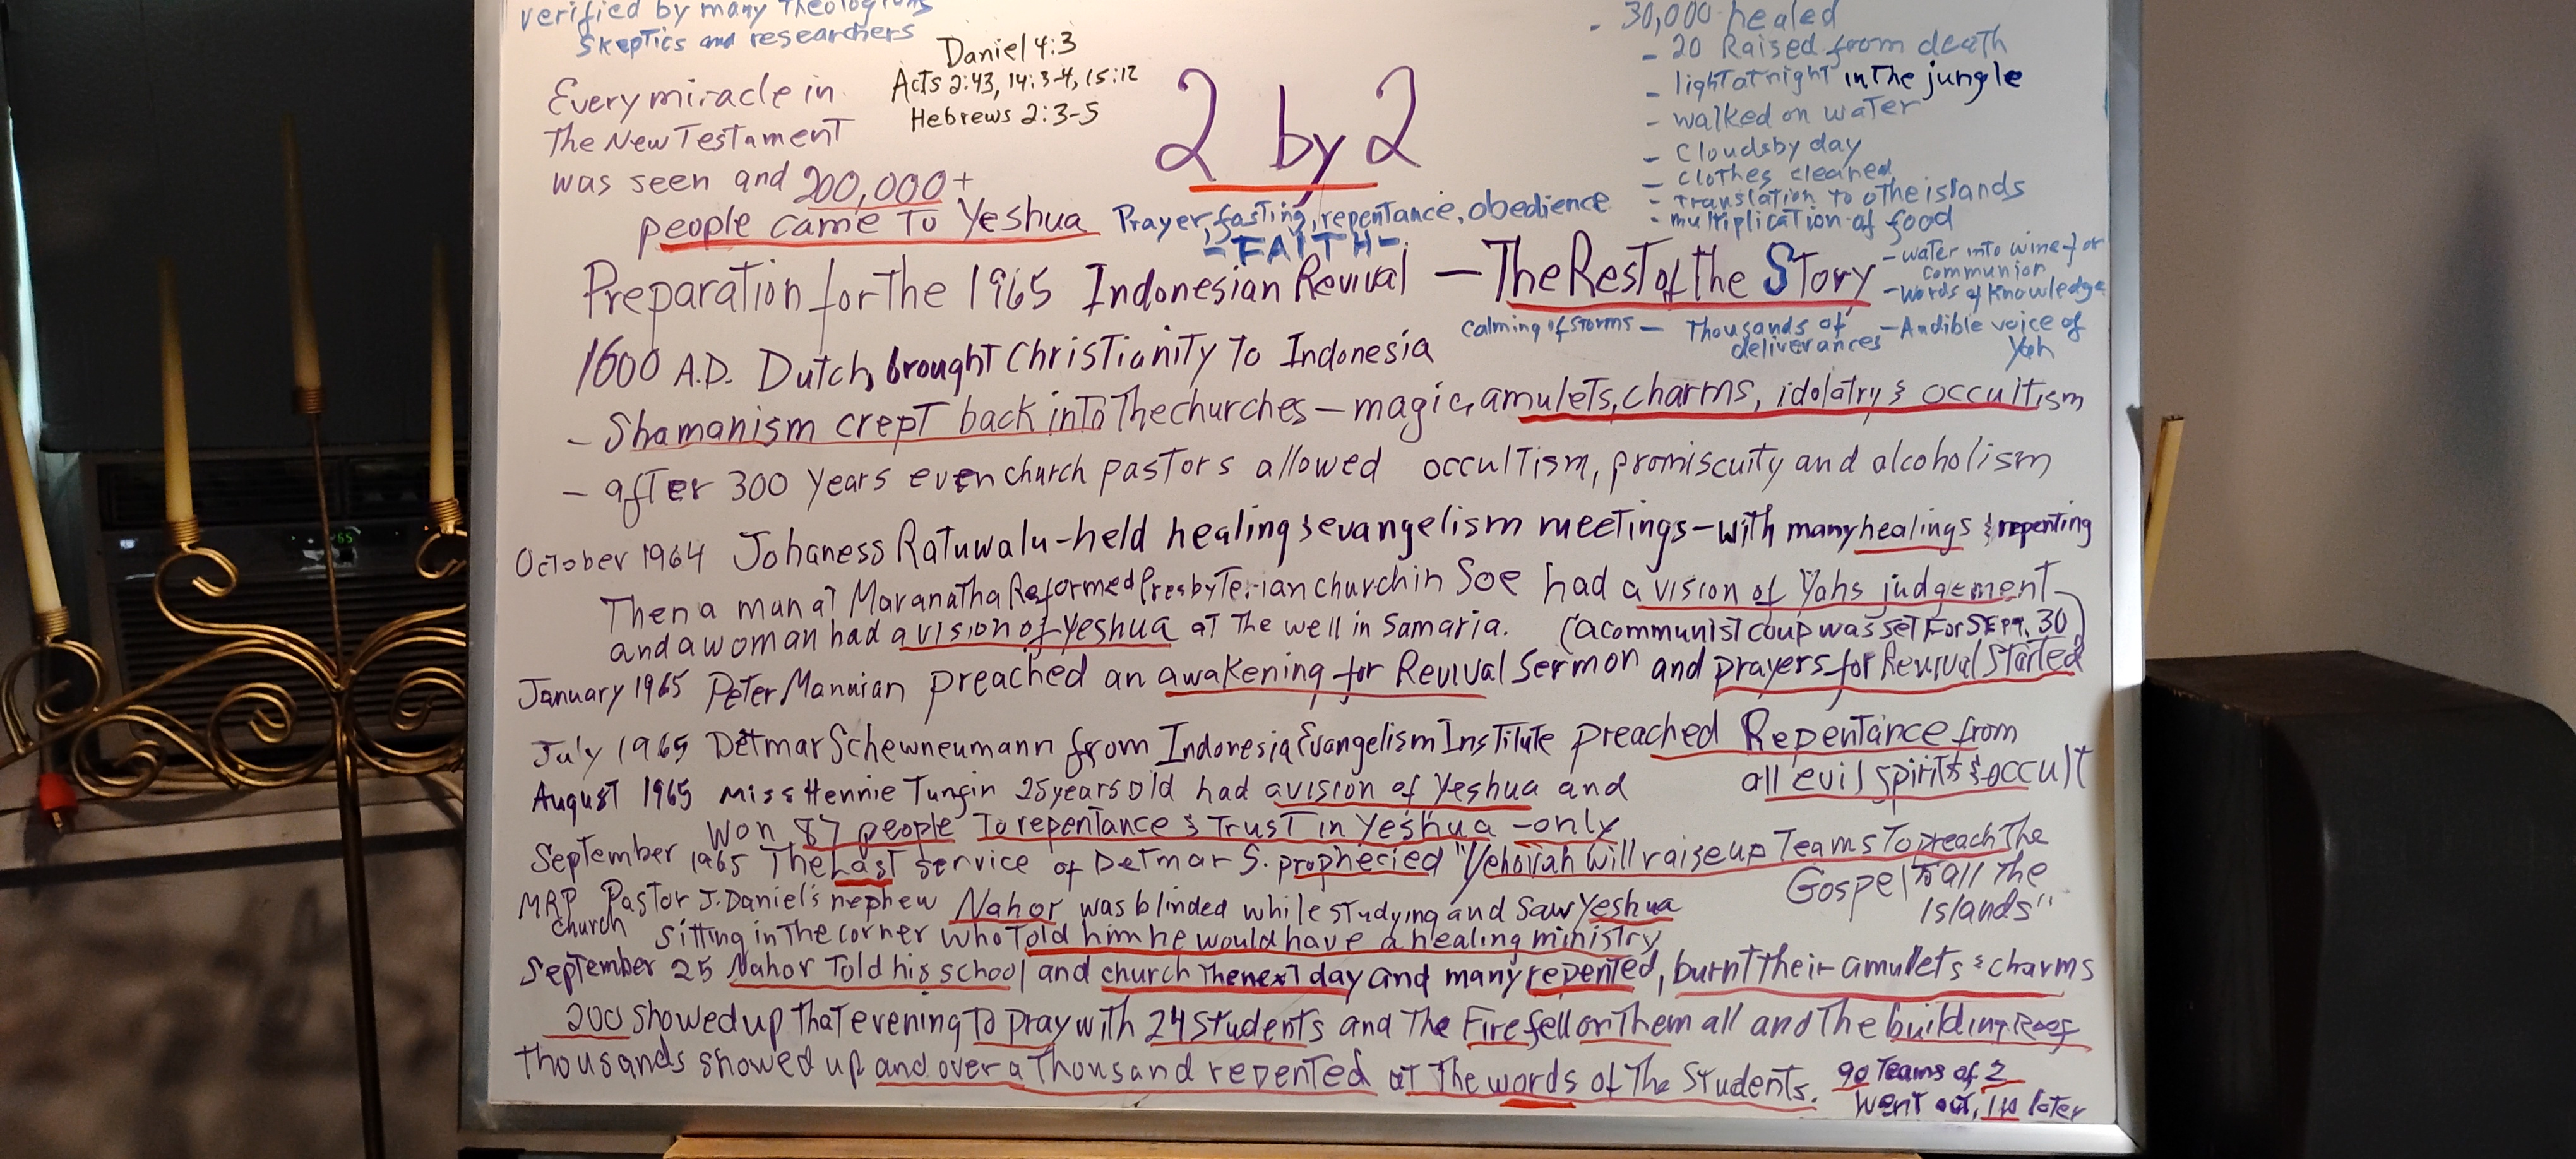 verified by many Theologians
skeptics and researchers
Daniel 4:3
Acts 2:43, 14:3-4, 15:12
Hebrews 2:3-5
Every miracle in
The New Testament
was seen and 200,000+
people came To Yeshua
2 by 2
Prayer, fasting, repentance, obedience
- FAITH -
- 30,000 healed
- 20 Raised from death
- light at night in The jungle
- walked on water
- Clouds by day
- clothes cleaned
- Translation to othe islands
- multiplication of food
- water into wine for
communion
- words of knowledge
- Audible voice of
Yah
Calming of storms - Thousands of
deliverances
Preparation for The 1965 Indonesian Revival - The Rest of the Story
1600 A.D. Dutch brought Christianity To Indonesia
- Shamanism crept back into The churches - magic, amulets, charms, idolatry & occultism
- after 300 years even church pastors allowed occultism, promiscuity and alcoholism
October 1964 Johaness Ratuwalu - held healing & evangelism meetings - with many healings & repenting
Then a man at Maranatha Reformed Presbyterian church in Soe had a vision of Yahs judgement
and a woman had a vision of Yeshua at The well in Samaria. (a communist coup was set For SEPT. 30)
January 1965 Peter Mannian preached an awakening for Revival Sermon and prayers for Revival Started
July 1965 Detmar Schewneumann from Indonesia Evangelism Institute preached Repentance from
all evil spirits & occult
August 1965 Miss Hennie Tungin 25 years old had a vision of Yeshua and
won 87 people To repentance & Trust in Yeshua - only
September 1965 The Last service of Detmar S. prophecied "Yehovah will raise up Teams To preach The
Gospel to all the
islands"
MRP Pastor J. Daniel's nephew Nahor was blinded while studying and saw Yeshua
church sitting in The corner who Told him he would have a healing ministry
September 25 Nahor Told his school and church The next day and many repented, burnt their amulets & charms
200 showed up That evening To pray with 24 students and The Fire fell on Them all and The building Roof
Thousands showed up and over a Thousand repented at The words of The Students.
90 Teams of 2
went out,
later